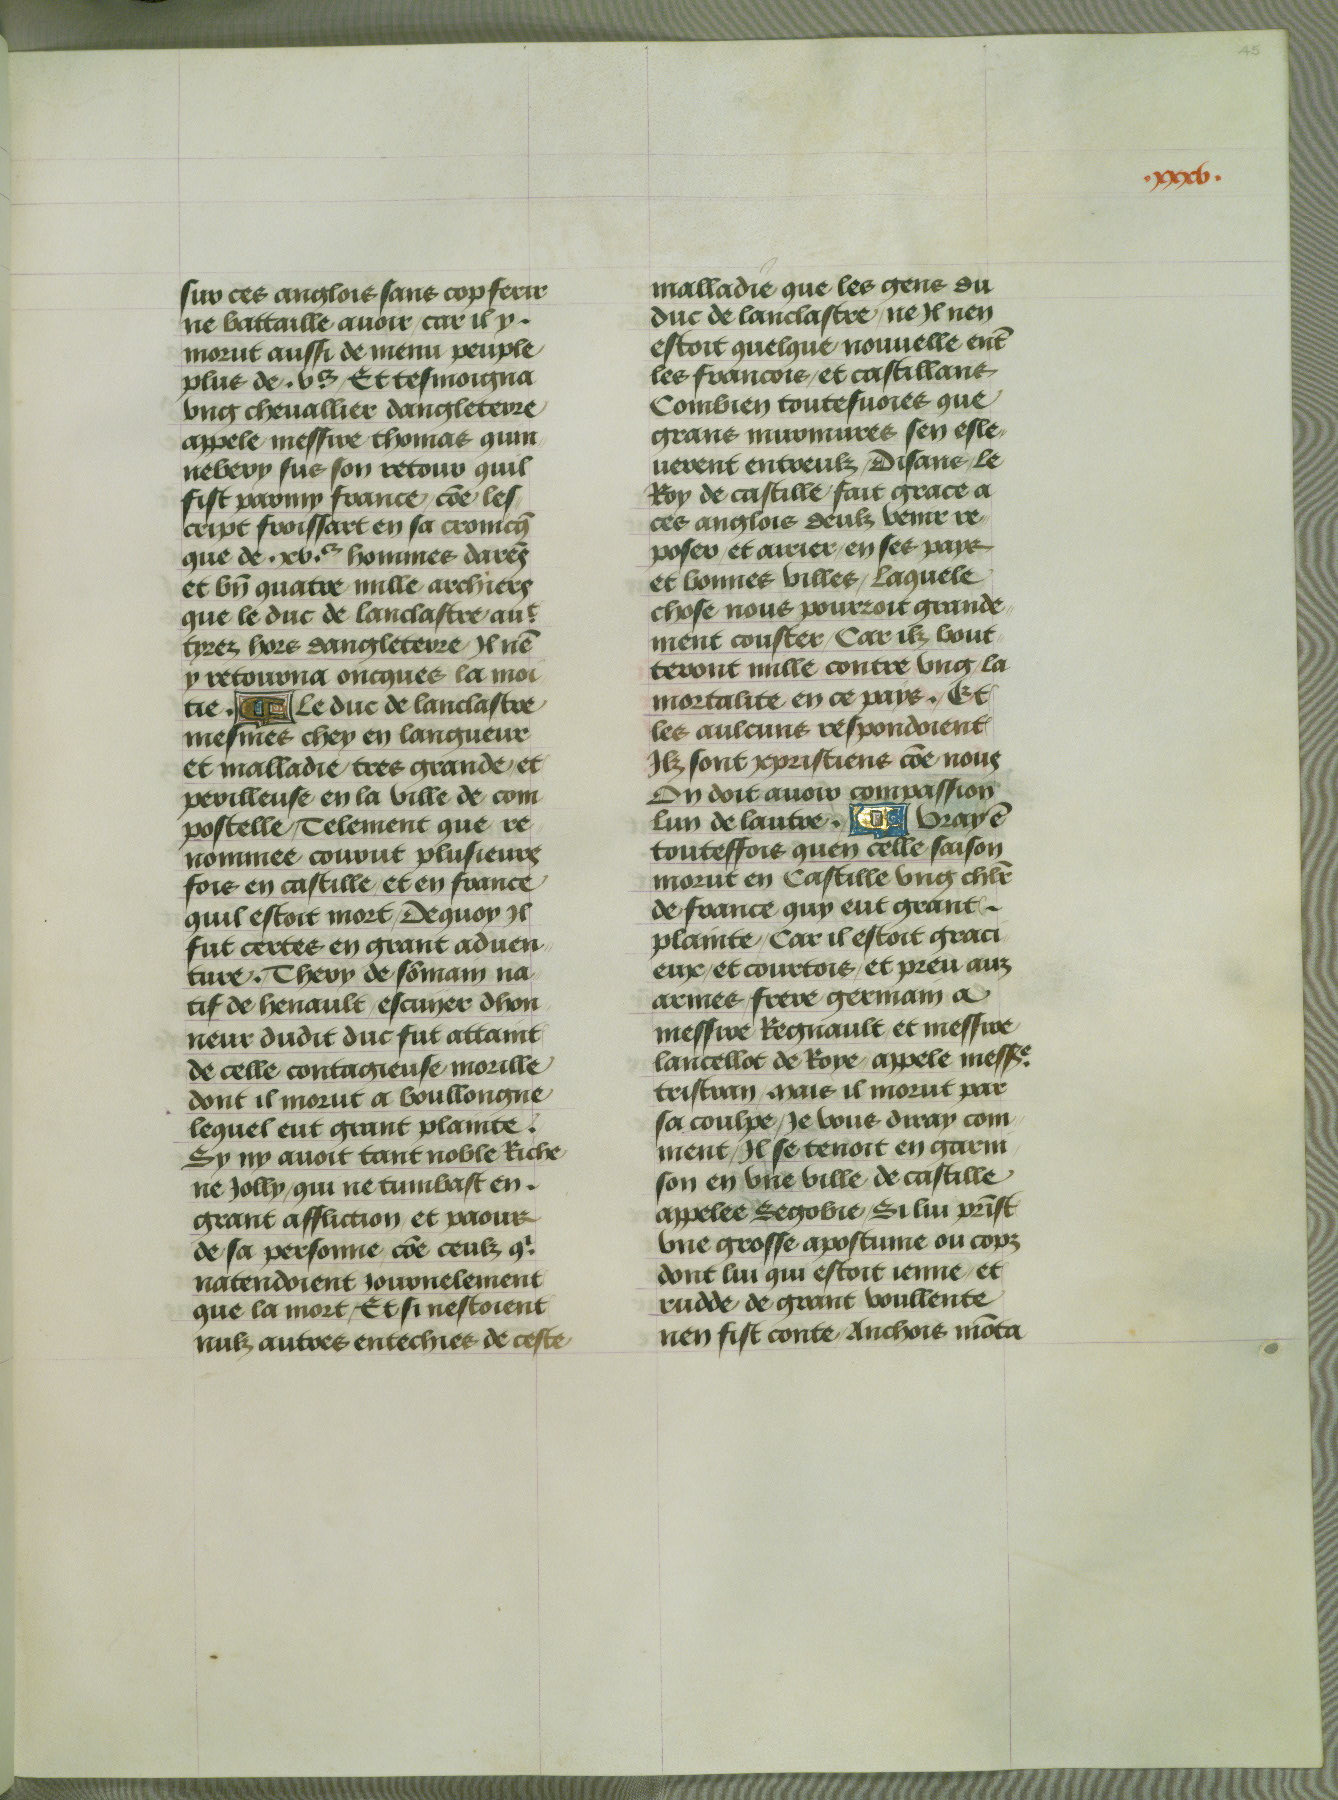 45
.xxxv.
sur ces anglois sans cop ferir
ne battaille auoir / car il y .
morut aussi de menu peuple
plus de . v.ᶜ / Et tesmoigna
vng cheuallier dangleterre
appele messire thomas quin
nebery sus son retour quil
fist parmy france / cõe les
cript froissart en sa cronicq̃
que de . xv.ᶜ hommes darẽs
et bñ quatre mille archiers
que le duc de lanclastre auᵗ
tyrez hors dangleterre / Il nẽ
y retourna oncques la moi
tie . Le duc de lanclastre
mesmes chey en langueur
et malladie tres grande / et
perilleuse en la ville de com
postelle / Telement que re
nommee courut plusieurs
fois en castille / et en france
quil estoit mort / Dequoy Il
fut certes en grant aduen
ture . Thery de sõmain na
tif de henault / escuyer dhon
neur dudit duc fut attaint
de celle contagieuse morille
dont il morut a boullongne
lequel eut grant plainte .
Sy ny auoit tant noble Riche
ne Jolly / qui ne tumbast en .
grant affliction / et paour
de sa personne / cõe ceulz qⁱ
natendoient Journelement
que la mort / Et si nestoient
nulz autres entechies de ceste
malladie que les gens du
duc de lanclastre / ne Il nen
estoit quelque nouuelle ent̃
les francois / et castillans
Combien toutesuoies que
grans murmures sen esle
uerent entreulz / Disans / Le
Roy de castille / fait grace a
ces anglois deulz venir re
poser / et airier / en ses pays
et bonnes villes / Laquele
chose nous pourroit grande
ment couster / Car ilz bout
teront mille contre vng la
mortalite en ce pays . Et
les aulcuns respondoient
Ilz sont xpristiens cõe nous
On doit auoir compassion
lun de lautre . Vray ẽ
touteffois quen celle saison
morut en Castille vng chlr̃
de france quy eut grant .
plainte / Car il estoit graci
eux / et courtois / et preu aux
armes / frere germain a
messire Regnault et messire
lancellot de Roye / appele messᵉ.
tristran / Mais il morut par
sa coulpe / Je vous diray com
ment / Il se tenoit en garni
son en vne ville de castille
appelee Segobie / Si lui prĩst
vne grosse apostume ou corps
dont lui qui estoit ienne / et
rudde de grant voullente
nen fist conte / Anchois mõta